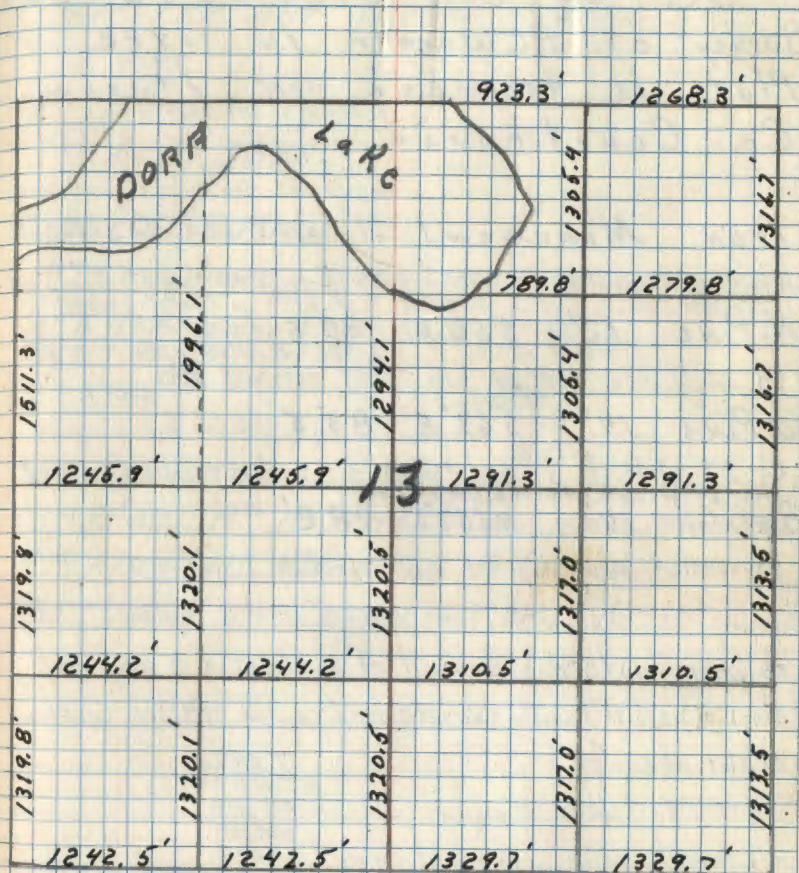 923.3' 1268.3'
DORA LaKe
1305.4' 1316.7'
789.8' 1279.8'
1511.3' 1996.1' 1294.1' 1305.4' 1316.7'
1245.9' 1245.9' 13 1291.3' 1291.3'
1319.8' 1320.1' 1320.5' 1317.0' 1313.5'
1244.2' 1244.2' 1310.5' 1310.5'
1319.8' 1320.1' 1320.5' 1317.0' 1313.5'
1242.5' 1242.5' 1329.7' 1329.7'